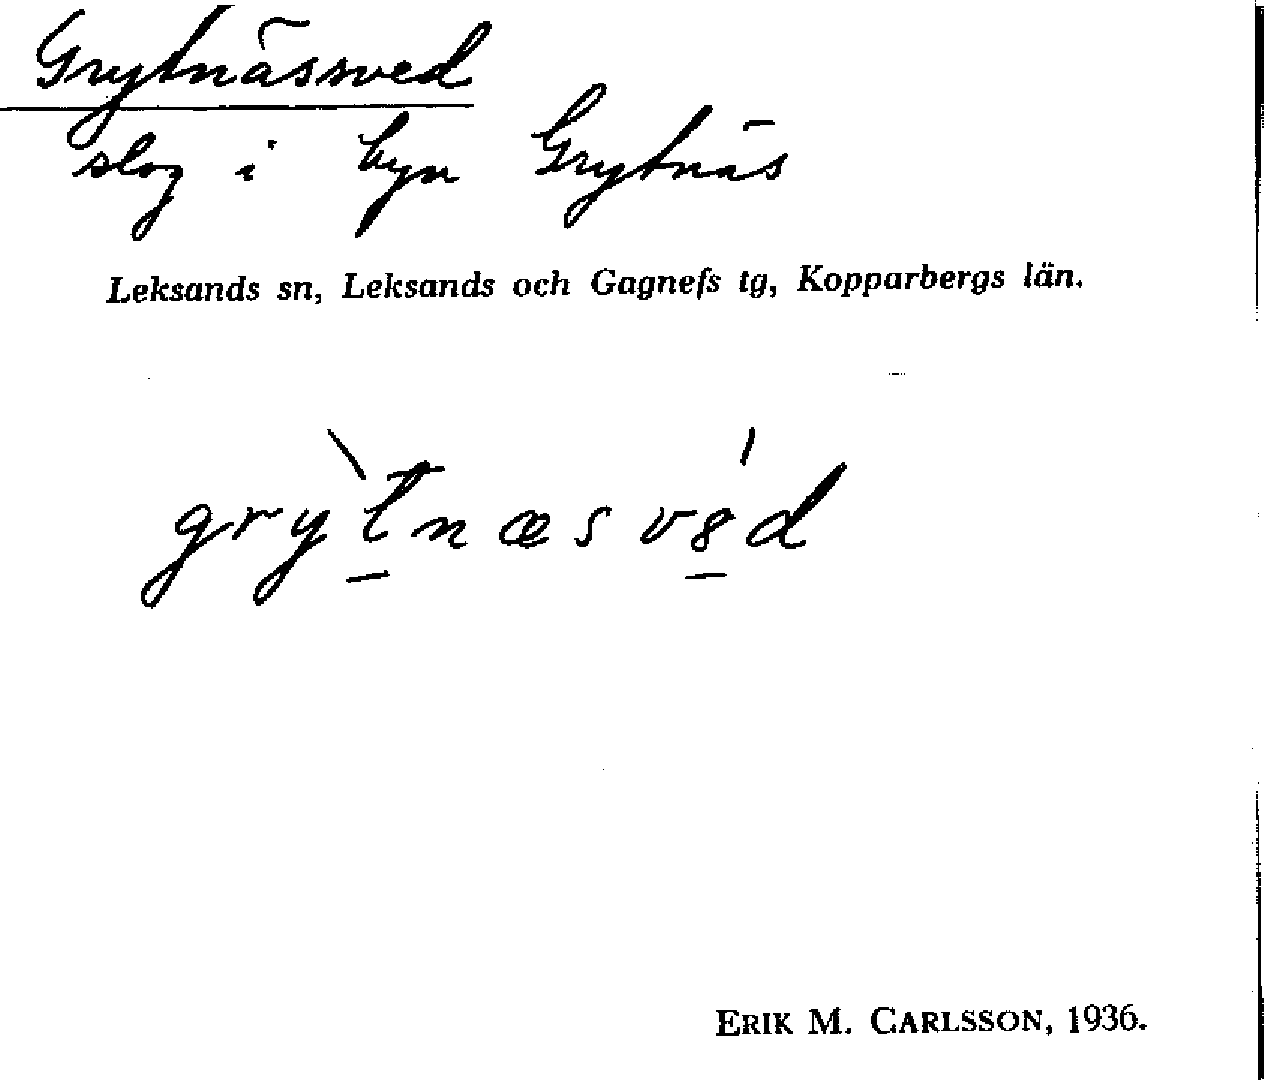 Grytnässved
slog i byn Grytnäs
Leksands sn, Leksands och Gagnefs tg, Kopparbergs län.
grỳt̠næsv 8̠́d
ERIK M. CARLSSON, 1936.